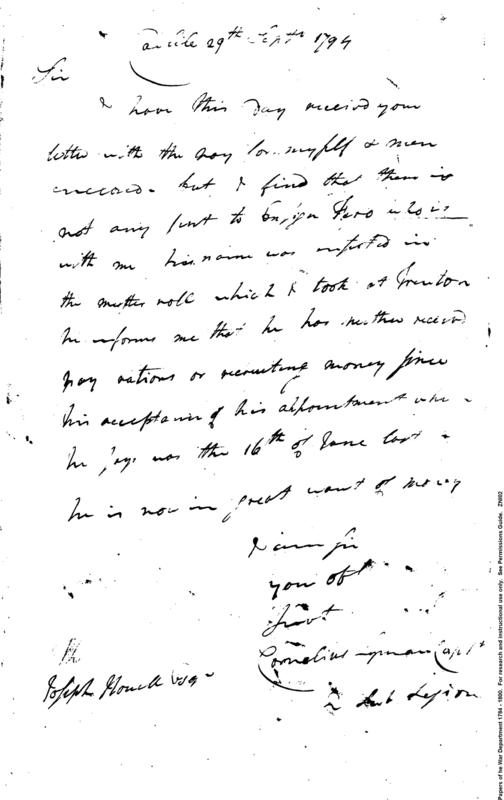 Carlile 29th Septr 1794
Sir
I have this day received your
letter with the pay for myself & men
but I find that there is
not any sent to Ensign Fero who is
with me his name was inserted in
the muster roll which I took at Trenton
he informs me that he has neither received
pay rations or recruiting money since
his acceptance of his appointment
he says was the 16th of June last
he is now in great want of money
I am Sir
your obt
Servt
Cornelius Lyman Capt
2 Sub Legion
Joseph Howell Esq
Papers of he War Department 1784 - 1800. For research and instructional use only. See Permissions Guide. ZNI02